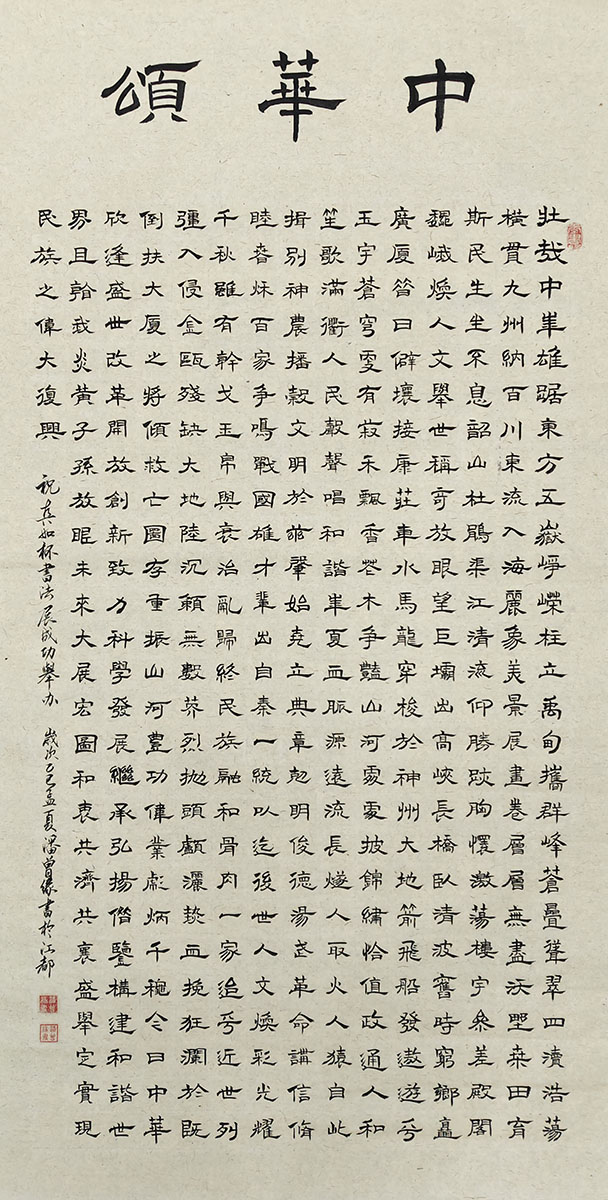 中華頌
壯哉中華雄踞東方五嶽崢嶸柱立禹甸攜群峰蒼疊聳翠四瀆浩蕩
橫貫九州納百川東流入海麗象美景展畫卷層層無盡沃野桑田育
斯民生生不息韶山杜鵑渠江清流仰勝跡胸懷激蕩樓宇參差殿閣
巍峨煥人文舉世稱奇放眼望巨壩出高峽長橋臥清波舊時窮鄉矗
廣厦昔日僻壤接康莊車水馬龍穿梭於神州大地箭飛船發遨遊乎
玉宇蒼穹更有菽禾飄香花木爭豔山河處處披錦繡恰值政通人和
笙歌滿衢人民歡聲唱和諧華夏血脈源遠流長燧人取火人猿自此
揖別神農播穀文明於茲肇始堯立典章克明俊德湯武革命講信脩
睦春秋百家爭鳴戰國雄才輩出自秦一統以迄後世人文煥彩光耀
千秋雖有幹戈玉帛興衰治亂歸終民族融和骨肉一家迨乎近世列
彊入侵金甌殘缺大地陸沉賴無數英烈拋頭顱灑熱血挽狂瀾於既
倒扶大厦之將傾救亡圖存重振山河豐功偉業彪炳千穐今日中華
欣逢盛世改革開放創新致力科學發展繼承弘揚借鑒構建和諧世
界且看我炎黄子孫放眼未來大展宏圖和衷共濟共襄盛舉定實現
民族之偉大復興
祝真如杯書法展成功舉办 歲次乙巳孟夏潘曾緣書於江都